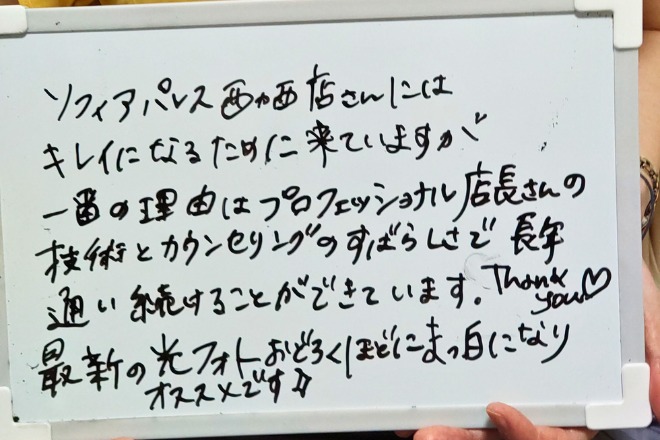 ソフィアパレス西加西店さんには
キレイになるために来ていますが
一番の理由はプロフェッショナル店長さんの
技術とカウンセリングのすばらしさで長年
通い続けることができています。Thank you♡
最新の光フォトおどろくほどにまっ白になり
オススメです♪